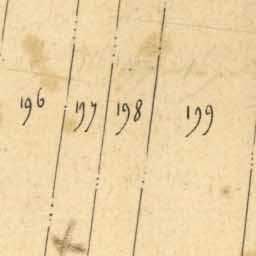 196 197 198 199